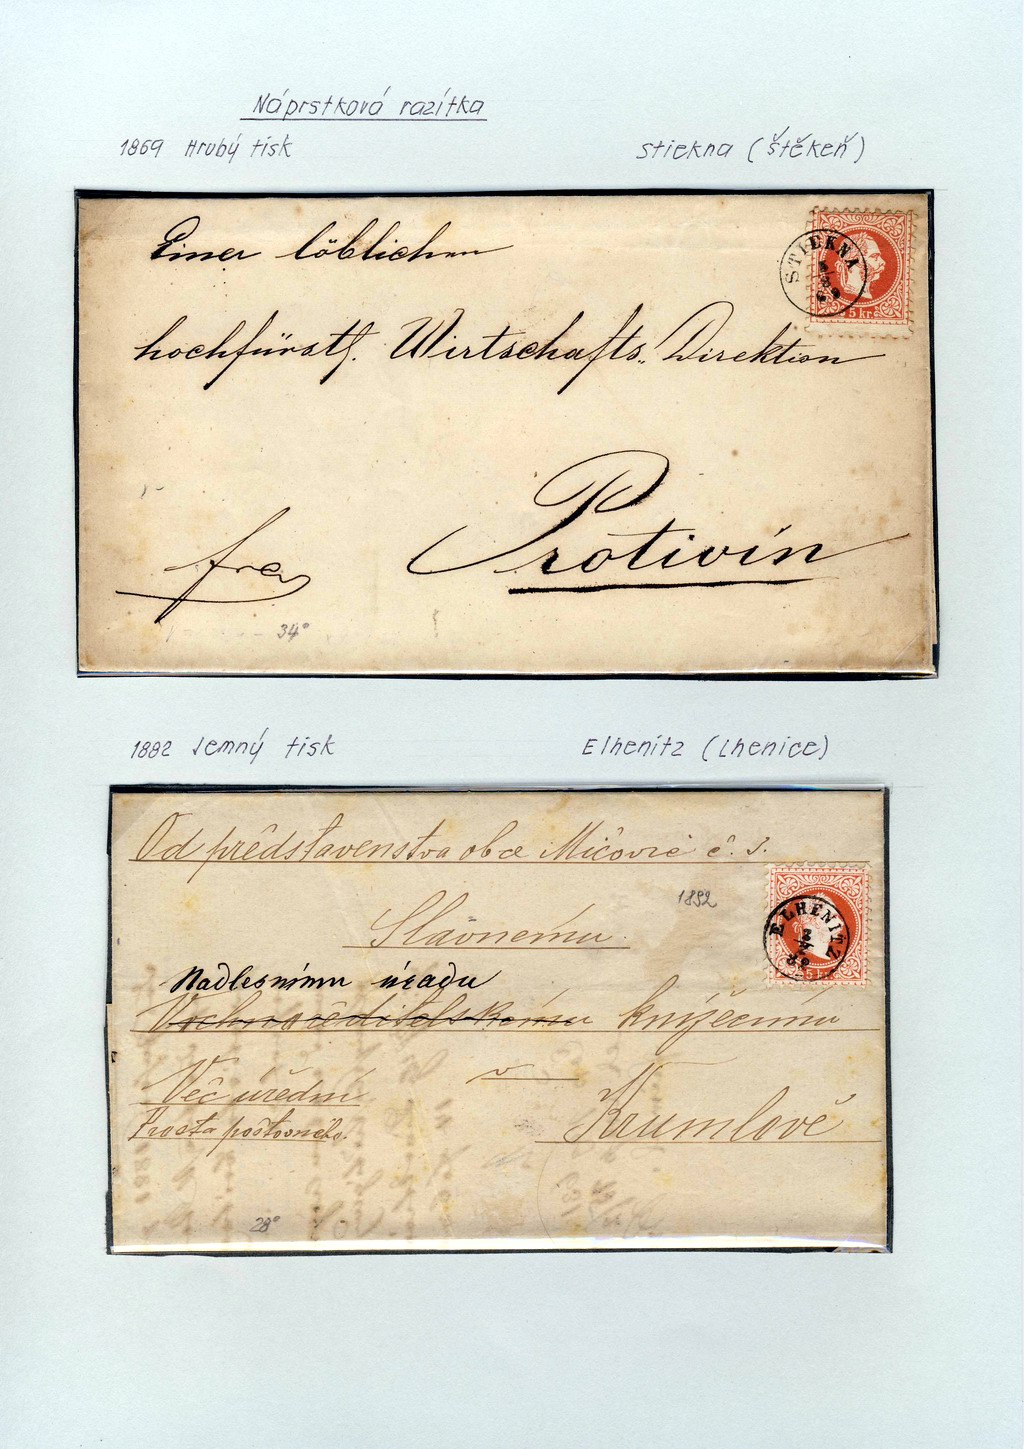 Náprstková razítka
1869 Hrubý tisk
Stiekna (Štěkeň)
Einer löblichen
hochfürstl. Wirtschafts-Direktion
STIEKNA
5 kr.
Protivín
fco
34°
1882 Jemný tisk
Elhenitz (Lhenice)
Od představenstva obce Mičovic č. J.
1892
Slavnému
ELHENITZ
5 kr
Nadlesnímu úřadu
knížecímu
Věc úřední
v
Krumlově
Prosta poštovného.
28°